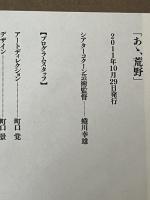 「あゝ、荒野」
2011年10月29日発行
シアターコクーン芸術監督――蜷川幸雄
【プログラムスタッフ】
アートディレクション――町口覚
デザイン――町口景